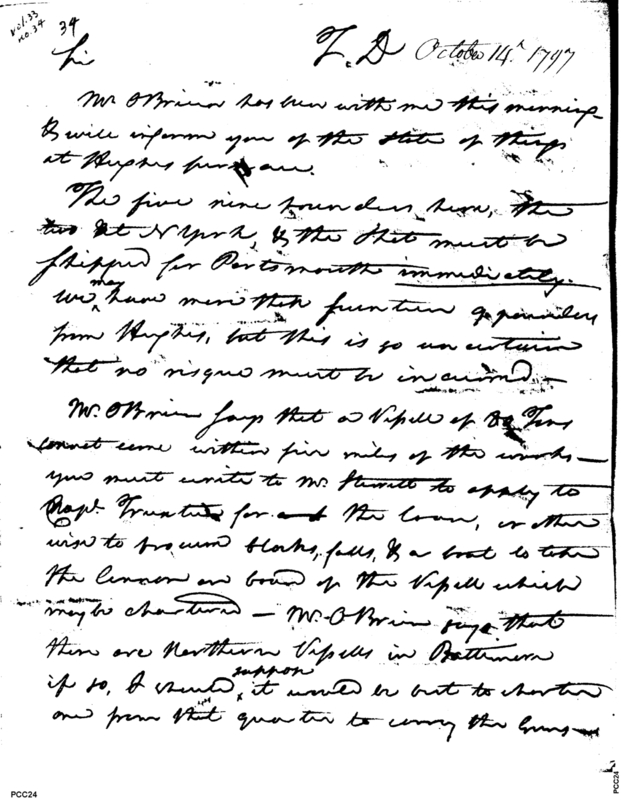 Vol. 33
no. 34
34
Sir
T. D October 14th 1797
Mr OBrien has been with me this morning
& will inform you of the state of things
at Hughes furnace.
The five nine pounders here, the
two at N York, & the Shot must be
shipped for Portsmouth immediately.
We may have more than fourteen 9 pounders
from Hughes, but this is so uncertain
that no risque must be incurred —
Mr. OBrien says that a Vessell of 80 Tons
cannot come within five miles of the works —
you must write to Mr. to apply to
Capt. Truxtun for the loan, or other
wise to procure blocks, falls, & a boat to take
the Cannon on board of the Vessell which
may be chartered — Mr. OBrien says that
there are Northern Vessells in Baltimore
if so, I should suppose it would be best to charter
one from that quarter to carry the Guns —
PCC24
PCC24